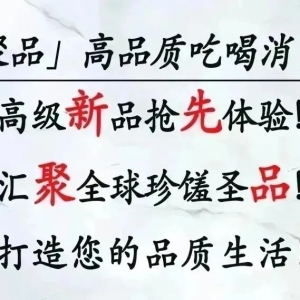 品」高品质吃喝消
高级新品抢先体验!
汇聚全球珍馐圣品!
打造您的品质生活